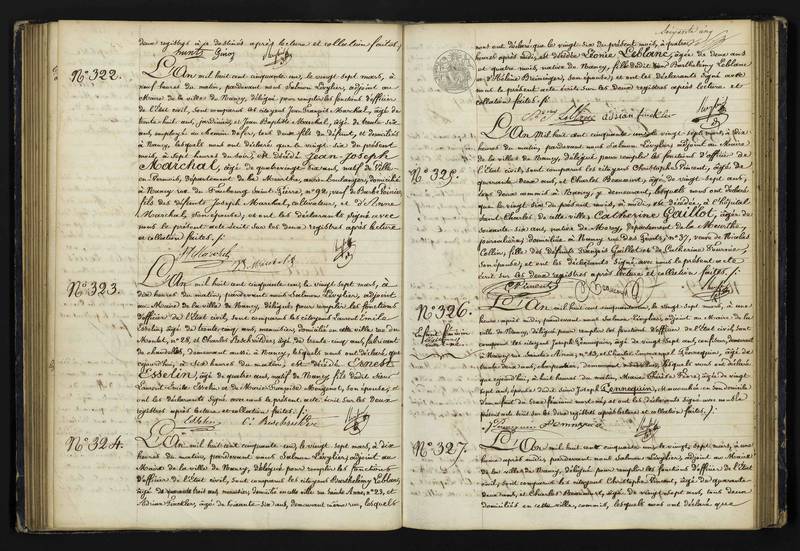 deux registres à ce destinés après lecture et collation faites.
N° 322.
L'An mil huit cent cinquante un, le vingt sept mars, à
neuf heures du matin, pardevant nous Salmon Lévylier, adjoint au
Maire de la ville de Nancy, délégué pour remplir les fonctions d'officier
de l'état civil, sont comparus les citoyens Jean François Marchal, âgé de
trente huit ans, jardinier, et Jean Baptiste Marchal, âgé de trente six
ans, employé au chemin de fer, tous deux fils du défunt, et domiciliés
à Nancy, lesquels nous ont déclaré que le vingt six du présent
mois, à sept heures du soir, est décédé Jean Joseph
Marchal, âgé de quatrevingt six ans, natif de Ville
en Vermois, département de la Meurthe, ancien boulanger, domicilié
à Nancy rue du Faubourg Saint Pierre, n° 92, veuf de Barbe
fils des défunts Joseph Marchal, cultivateur, et d'Anne
Marchal, son épouse; et ont les déclarants signé avec
nous le présent acte écrit sur les deux registres après lecture
et collation faites.
N° 323.
L'An mil huit cent cinquante un, le vingt sept mars, à
dix heures du matin, pardevant nous Salmon Lévylier, adjoint
au Maire de la ville de Nancy, délégué pour remplir les fonctions
d'officier de l'état civil, sont comparus les citoyens Laurent Emile
Esselin, âgé de trente cinq ans, menuisier, domicilié en cette ville rue du
n° 28, et Charles âgé de trente cinq ans, fabricant
de chandelles, demeurant aussi à Nancy, lesquels nous ont déclaré que
aujourd'hui, à six heures du matin, est décédé Ernest
Esselin, âgé de quatre ans, natif de Nancy, fils dudit
Laurent Emile Esselin et de Marie Françoise Mougenot, son épouse; et
ont les déclarants signé avec nous le présent acte écrit sur les deux
registres après lecture et collation faites.
N° 324.
L'An mil huit cent cinquante un, le vingt sept mars, à dix
heures du matin, pardevant nous Salmon Lévylier, adjoint au
Maire de la ville de Nancy, délégué pour remplir les fonctions
d'officier de l'état civil, sont comparus les citoyens Barthélemy Leblanc,
âgé de ans, menuisier, domicilié en cette ville rue Sainte Anne, n° 23, et
Adrien Finckler, âgé de soixante-six ans, demeurant même rue, lesquels
nous ont déclaré que le vingt six du présent mois, à quatre
heures après midi, est décédée Léonie Leblanc, âgée de deux ans
et quatre mois, native de Nancy, fille dudit Barthélemy Leblanc
et d'Hélène son épouse; et ont les déclarants signé avec
nous le présent acte écrit sur les deux registres après lecture et
collation faites.
Leblanc adrian finckler
N° 325.
L'An mil huit cent cinquante un, le vingt sept mars, à dix
heures du matin, pardevant nous Salmon Lévylier, adjoint au Maire
de la ville de Nancy, délégué pour remplir les fonctions d'officier de
l'état civil, sont comparus les citoyens Christophe Pincent, âgé de
quarante deux ans, et Charles Beaumont, âgé de vingt sept ans,
tous deux commis à Nancy, y demeurant, lesquels nous ont déclaré
que le vingt six du présent mois, à midi, est décédée, à l'hôpital
Saint Charles de cette ville, Catherine Gaillot, âgée de
soixante six ans, native de département de la Meurthe,
journalière, domiciliée à Nancy rue des Ponts, n° 37, veuve de Nicolas
Collin, fille des défunts François Gaillot et de Catherine
son épouse; et ont les déclarants signé avec nous le présent acte
écrit sur les deux registres après lecture et collation faites.
N° 326.
L'An mil huit cent cinquante un, le vingt sept mars, à une
heure après midi, pardevant nous Salmon Lévylier, adjoint au Maire de la
ville de Nancy, délégué pour remplir les fonctions d'officier de l'état civil, sont
comparus les citoyens Joseph Pennequin, âgé de vingt sept ans, demeurant
à Nancy rue Sainte Anne, n° 13, et Charles Emmanuel Pennequin, âgé de
trente deux ans, lesquels nous ont déclaré
que aujourd'hui, à huit heures du matin, Marie Charles Favre, âgée de vingt
sept ans, épouse dudit Joseph Pennequin, est accouchée en son domicile
d'un enfant du sexe féminin mort-né; et ont les déclarants signé avec nous le
présent acte écrit sur les deux registres après lecture et collation faites.
N° 327.
L'An mil huit cent cinquante un, le vingt sept mars, à une
heure après midi, pardevant nous Salmon Lévylier, adjoint au Maire
de la ville de Nancy, délégué pour remplir les fonctions d'officier de l'état
civil, sont comparus les citoyens Christophe Pincent, âgé de quarante
deux ans, et Charles Beaumont, âgé de vingt sept ans, tous deux
domiciliés en cette ville, commis, lesquels nous ont déclaré que